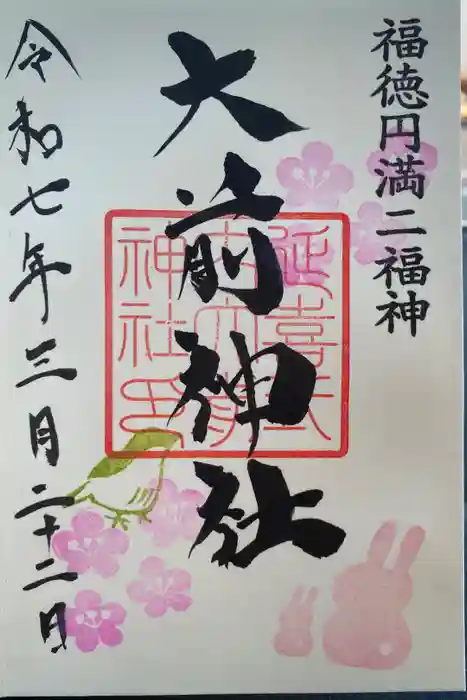 福徳円満二福神
大前神社
延喜式
内大前
神社印
令和七年三月二十二日